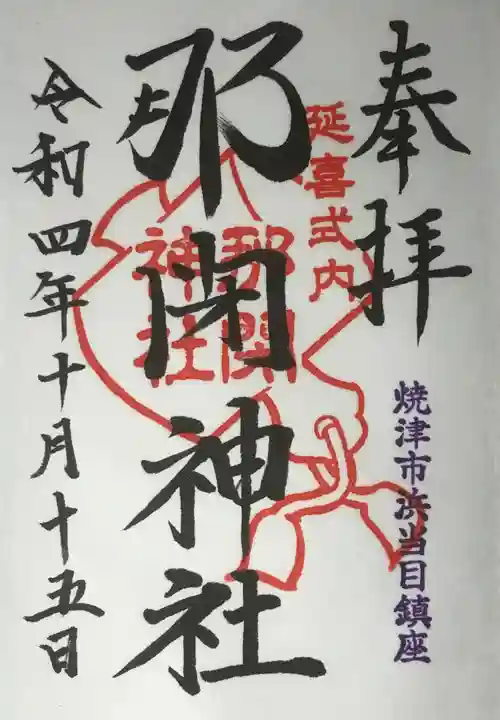 奉拝
延喜式内
焼津市浜当目鎮座
那閇神社
那閇
神社
令和四年十月十五日